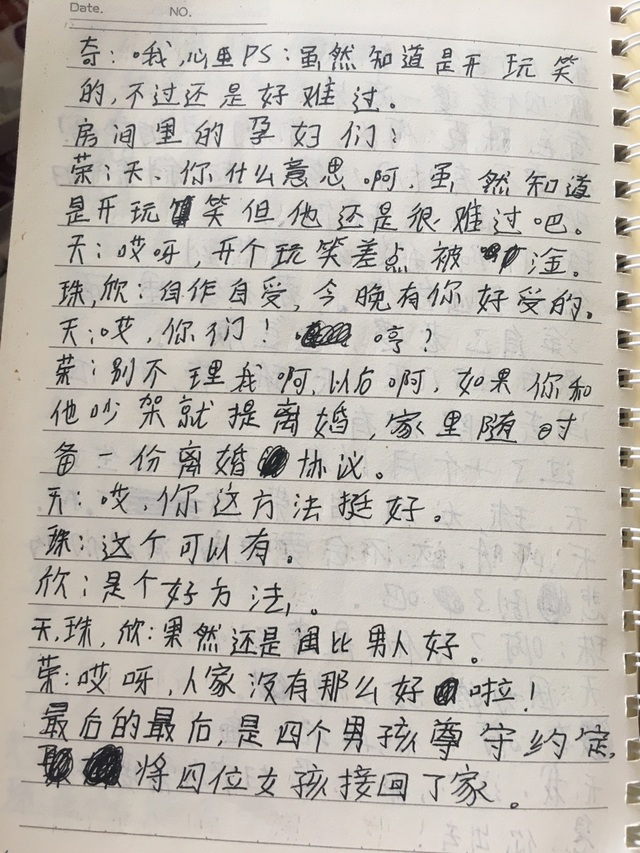 Date.
NO.
奇:哦,心里PS:虽然知道是开玩笑
的,不过还是好难过。
房间里的孕妇们:
荣:天、你什么意思啊,虽然知道
是开玩笑但他还是很难过吧。
天:哎呀,开个玩笑差点被淦。
珠,欣:自作自受,今晚有你好受的。
天:哎,你们!哼?
荣:别不理我啊,以后啊,如果你和
他吵架就提离婚,家里随时
备一份离婚协议。
天:哎,你这方法挺好。
珠:这个可以有。
欣:是个好方法,。
天.珠,欣:果然还是闺比男人好。
荣:哎呀,人家没有那么好啦!
最后的最后,是四个男孩尊守约定,
将四位女孩接回了家。